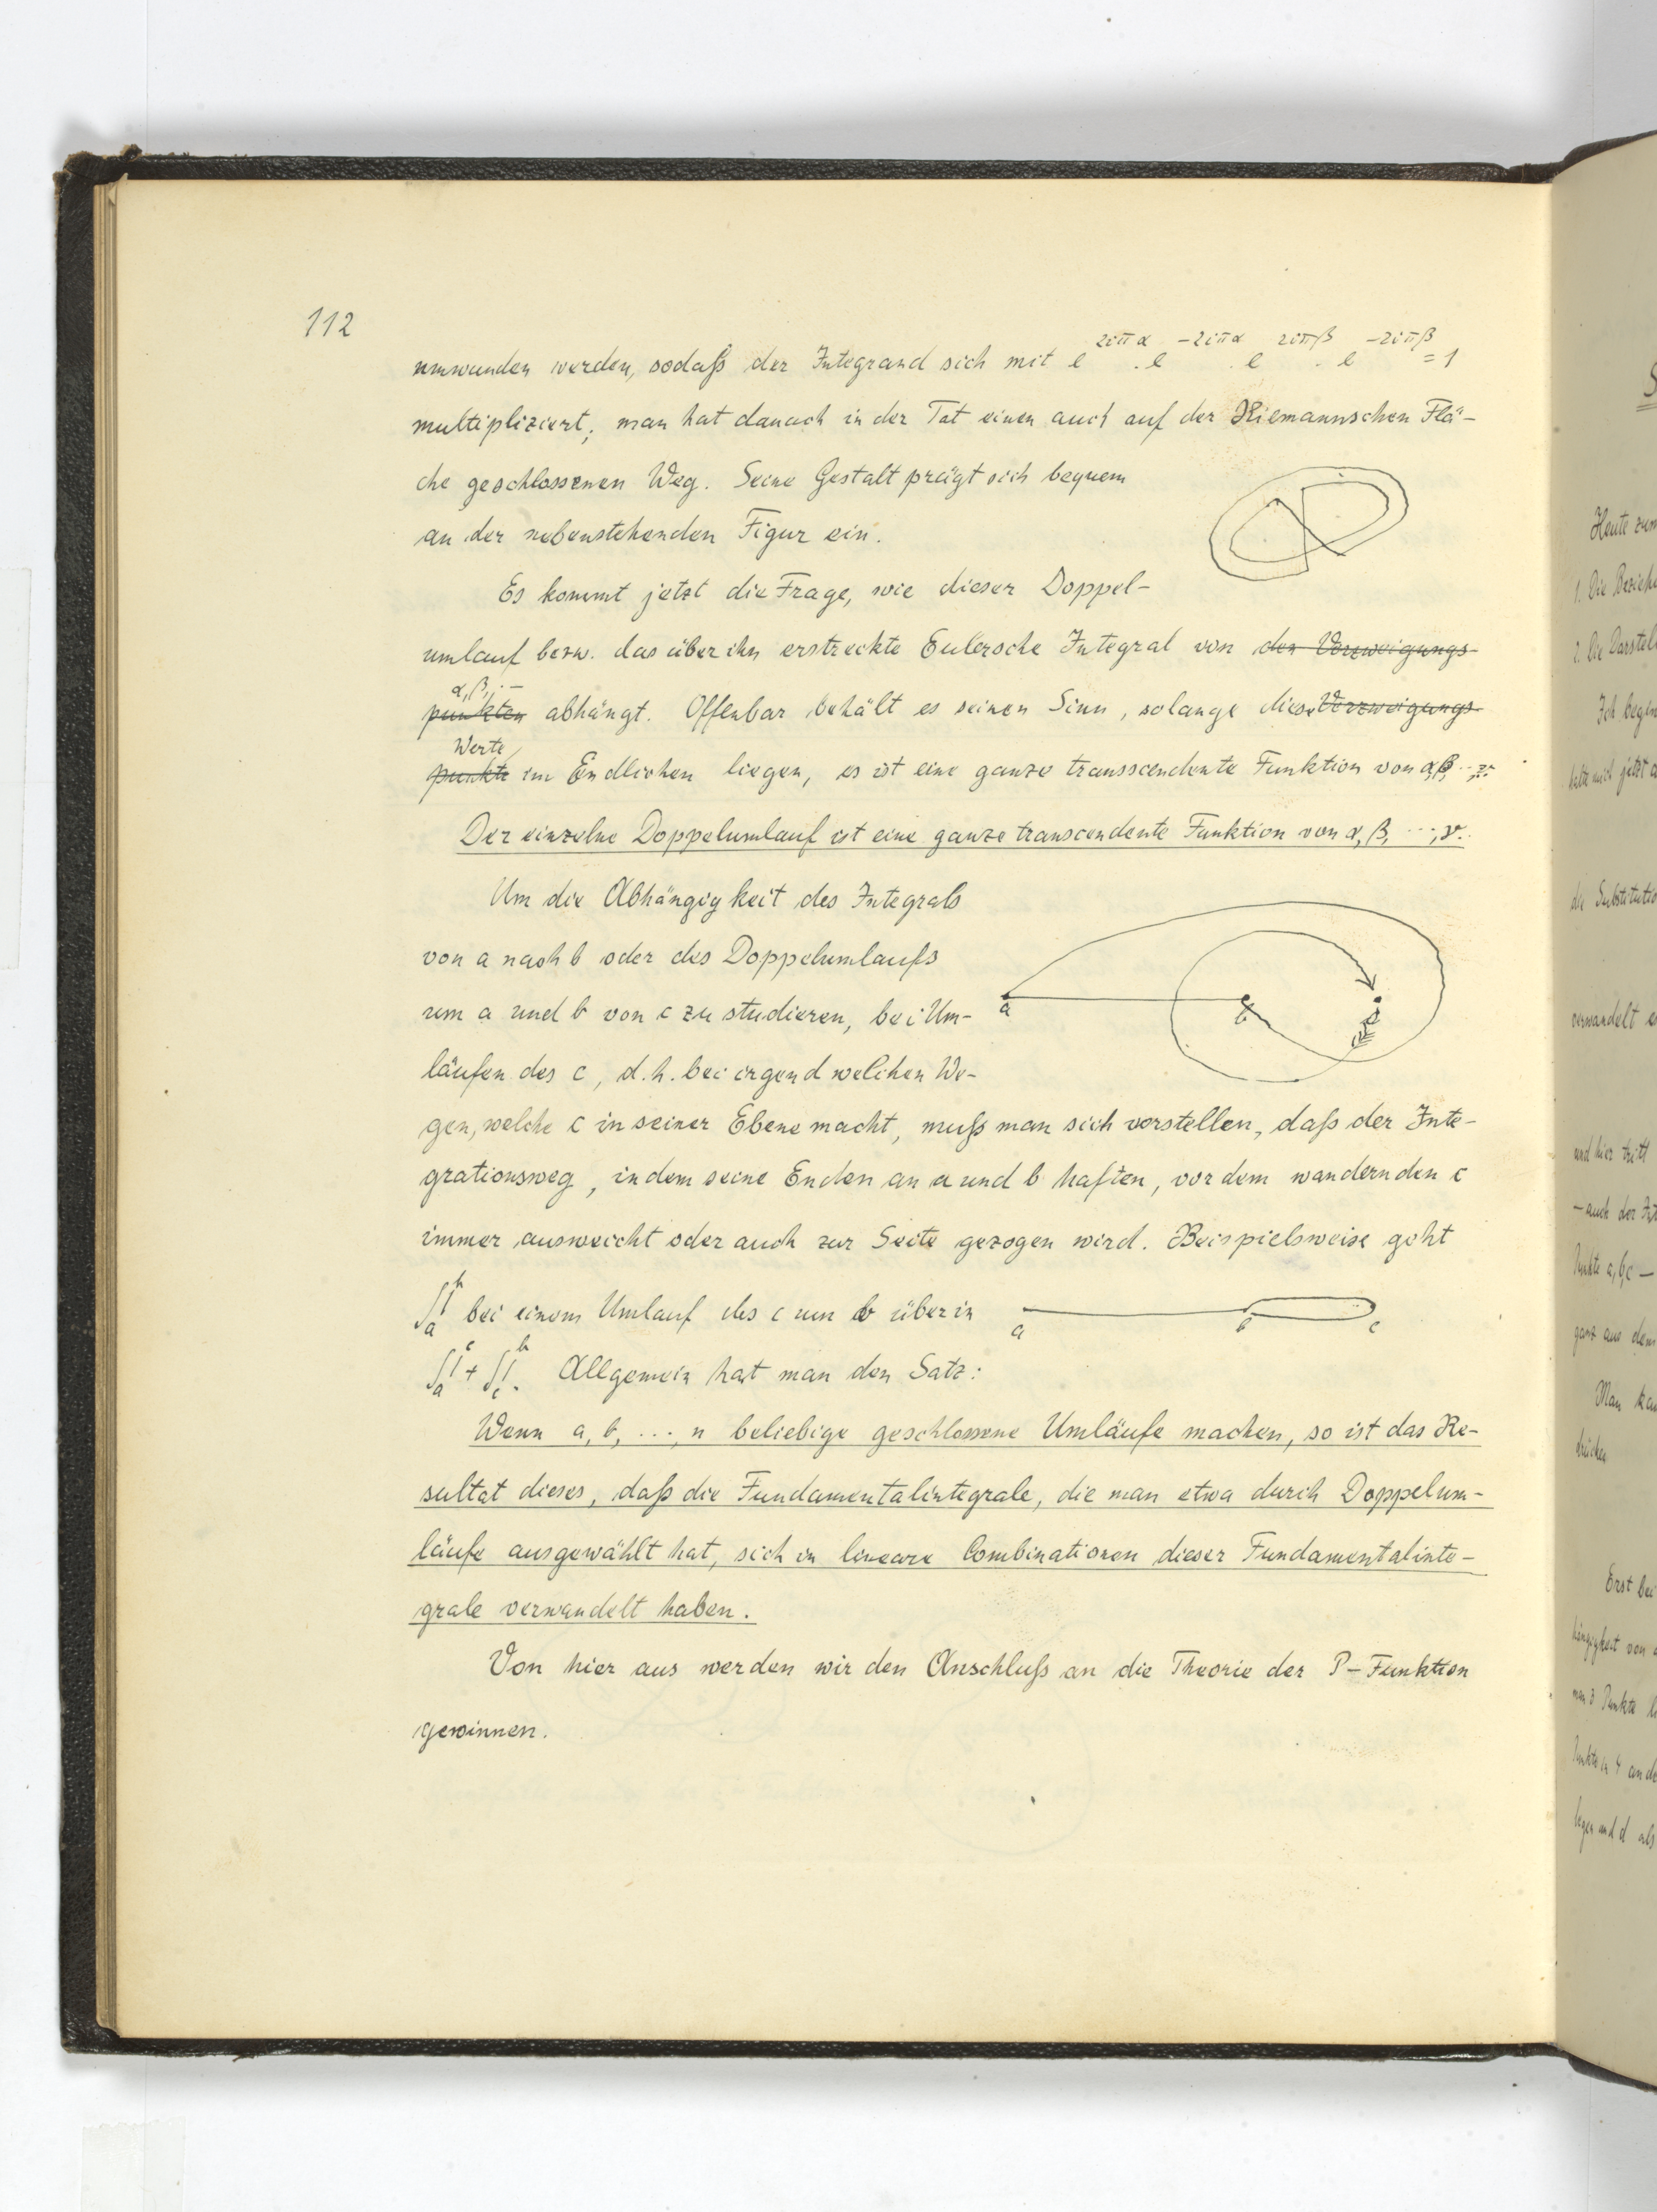 112
umwunden werden, sodaß der Integrand sich mit e^{2iπα} . e^{-2iπα} . e^{2iπβ} . e^{-2iπβ} = 1
multipliziert; man hat danach in der Tat einen auch auf der Riemannschen Flä-
che geschlossenen Weg. Seine Gestalt prägt sich bequem
an der nebenstehenden Figur ein.
Es kommt jetzt die Frage, wie dieser Doppel-
umlauf bezw. das über ihn erstreckte Eulersche Integral von den Verzweigungs-
α, β, ··
punkten abhängt. Offenbar behält es seinen Sinn, solange diese Verzweigungs-
Werte
punkte im Endlichen liegen, es ist eine ganze transscendente Funktion von α, β, ··
Der einzelne Doppelumlauf ist eine ganze transcendente Funktion von α, β, ···, ν.
Um die Abhängigkeit des Integrals
von a nach b oder des Doppelumlaufs
um a und b von c zu studieren, bei Um-
a b c
läufen des c, d.h. bei irgend welchen We-
gen, welche c in seiner Ebene macht, muß man sich vorstellen, daß der Inte-
grationsweg, indem seine Enden an a und b haften, vor dem wandernden c
immer ausweicht oder auch zur Seite gezogen wird. Beispielsweise geht
∫_a^b bei einem Umlauf des c um b über in
a b c
∫_a^c + ∫_c^b. Allgemein hat man den Satz:
Wenn a, b, ···, n beliebige geschlossene Umläufe machen, so ist das Re-
sultat dieses, daß die Fundamentalintegrale, die man etwa durch Doppelum-
läufe ausgewählt hat, sich in lineare Combinationen dieser Fundamentalinte-
grale verwandelt haben.
Von hier aus werden wir den Anschluß an die Theorie der P-Funktion
gewinnen.
Heute zum
1. Die Bezieh
2. Die Darstel
Ich begin
halte mich jetzt a
die Substitutio
verwandelt
und hier tritt
– auch der
Punkte a, b, c –
ganz aus dem
Man kan
drücken
Erst bei
hängigkeit von
man 3 Punkte
Punkte in 4
legen und d als